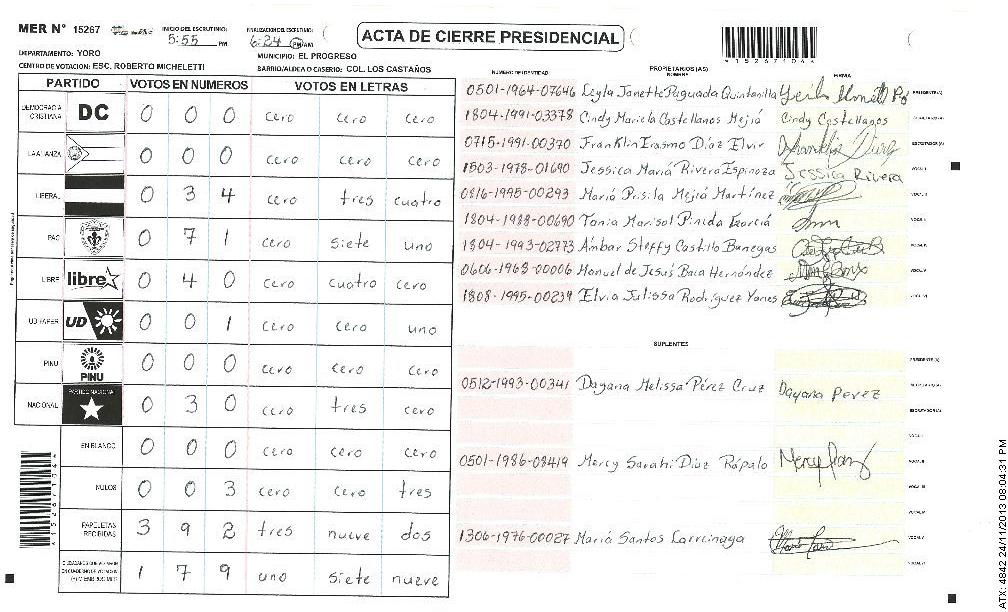 MER N° 15267
INICIO DEL ESCRUTINIO: 5:55 PM
FINALIZACION DEL ESCRUTINIO: 6:24 PM AM
ACTA DE CIERRE PRESIDENCIAL
4152671044
DEPARTAMENTO: YORO
MUNICIPIO: EL PROGRESO
CENTRO DE VOTACION: ESC. ROBERTO MICHELETTI
BARRIO/ALDEA O CASERIO: COL. LOS CASTAÑOS
PARTIDO VOTOS EN NUMEROS VOTOS EN LETRAS
DEMOCRACIA CRISTIANA DC 0 0 0 cero cero cero
LA ALIANZA 0 0 0 cero cero cero
LIBERAL 0 3 4 cero tres cuatro
PAC 0 7 1 cero siete uno
LIBRE libre 0 4 0 cero cuatro cero
UD FAPER UD 0 0 1 cero cero uno
PINU PINU 0 0 0 cero cero cero
NACIONAL PARTIDO NACIONAL 0 3 0 cero tres cero
EN BLANCO 0 0 0 cero cero cero
NULOS 0 0 3 cero cero tres
PAPELETAS RECIBIDAS 3 9 2 tres nueve dos
1 7 9 uno siete nueve
NUMERO DE IDENTIDAD PROPIETARIOS (AS) NOMBRE FIRMA
0501-1964-07646 Leyla Janette Paguada Quintanilla PRESIDENTE(A)
1804-1991-03378 Cindy Mariela Castellanos Mejiá Cindy Castellanos
0715-1991-00370 Franklin Erasmo Diáz Elvir ESCRUTADOR(A)
1503-1978-01690 Jessica Mariá Rivera Espinoza Jessica Rivera
0816-1995-00293 Mariá Prisila Mejiá Martínez
1804-1988-00690 Tania Marisol Pineda Garciá
1804-1993-02773 Ambar Steffy Castillo Banegas
0606-1968-00006 Manuel de Jesús Baca Hernández
1808-1995-00239 Elvia Julissa Rodríguez Yanes
SUPLENTES
PRESIDENTE(A)
0512-1993-00341 Dayana Melissa Pérez Cruz Dayana Perez
ESCRUTADOR(A)
0501-1986-08419 Mercy Sarahi Diáz Rápalo
1306-1976-00027 Mariá Santos Larreinaga
ATX: 4842 24/11/2013 08:04:31 PM